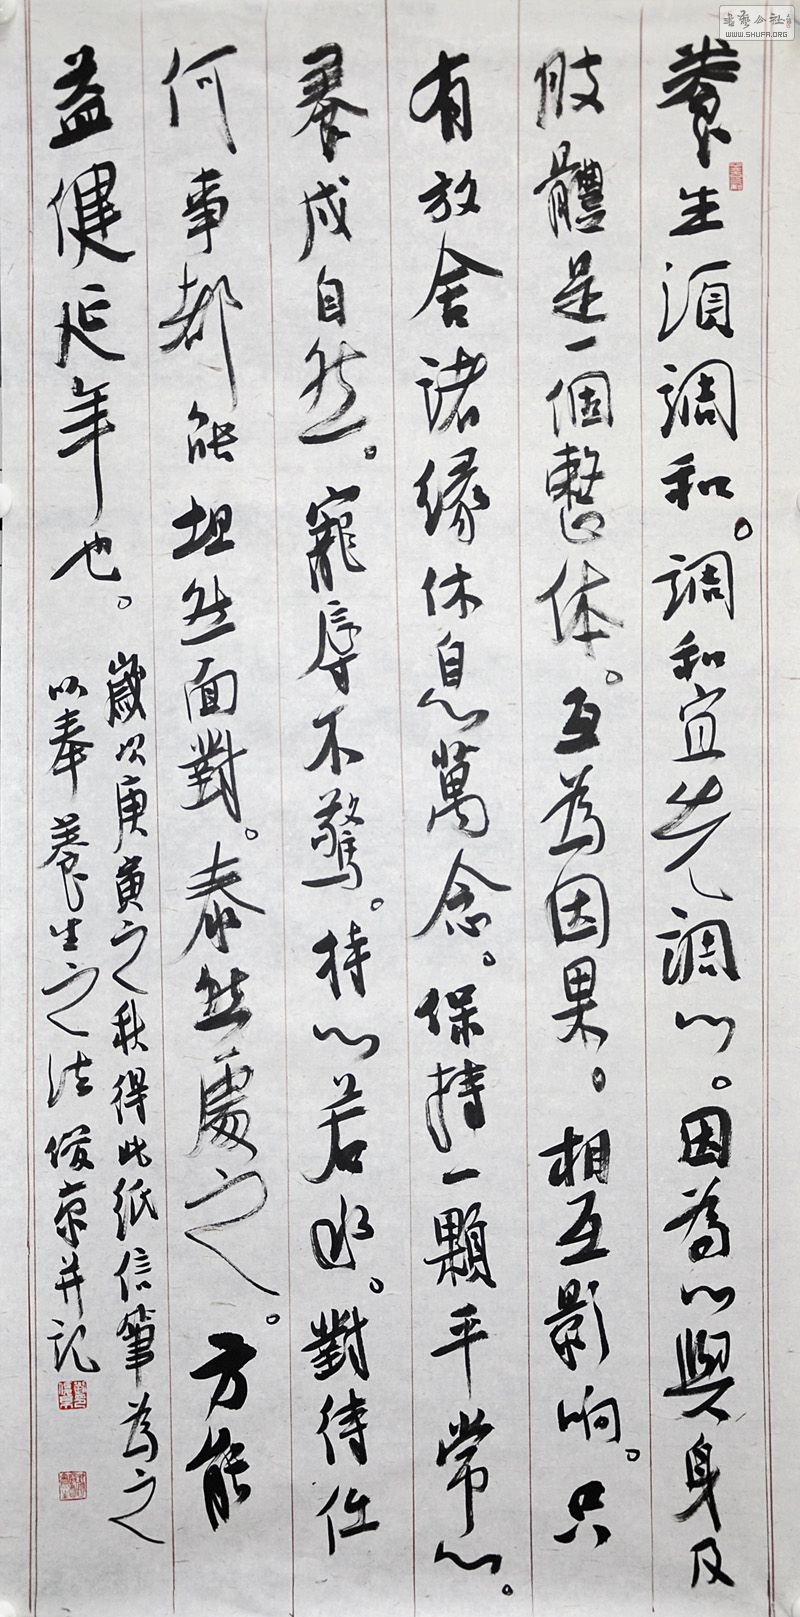 養生須調和。調和宜先調心。因為心與身及
肢體是一個整体。互為因果。相互影响。只
有放舍諸緣休息萬念。保持一顆平常心。
養成自然。寵辱不驚。持心若水。對待任
何事都能坦然面對。泰然處之。方能
益健延年也。
歲次庚寅之秋得此紙信筆為之
以奉養生之法 俊京并記
书艺公社
WWW.SHUFA.ORG